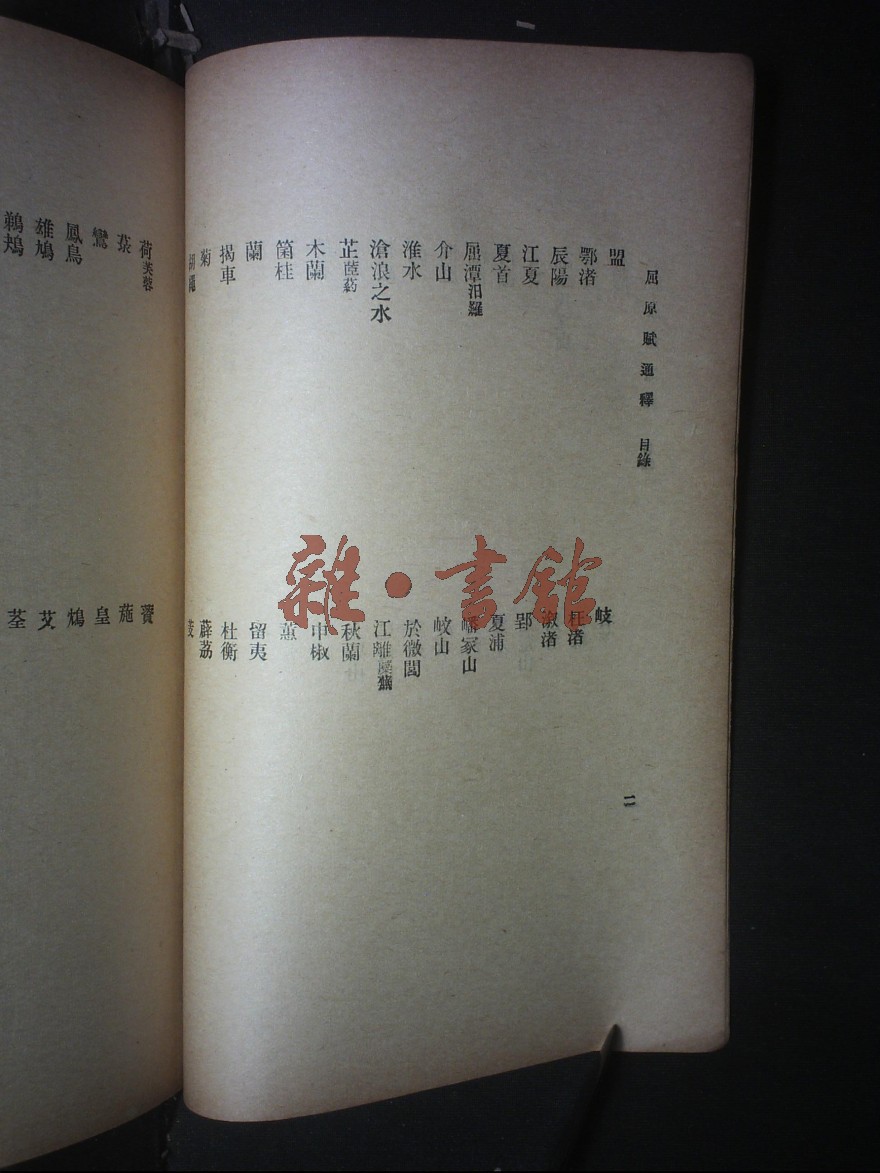 屈原賦通釋 目錄
二
盟 岐
鄂渚 枉渚
辰陽 漵渚
江夏 郢
夏首 夏浦
屈潭汨羅 嶓冢山
介山 岐山
淮水 於微閭
滄浪之水 江離蘪蕪
芷茝葯 秋蘭
木蘭 申椒
菌桂 蕙
蘭 留夷
揭車 杜衡
菊 薜荔
胡繩 芰
荷芙蓉 薋
菉 葹
鸞 皇
鳳鳥 鴆
雄鳩 艾
鵜鴂 荃
雜·書館